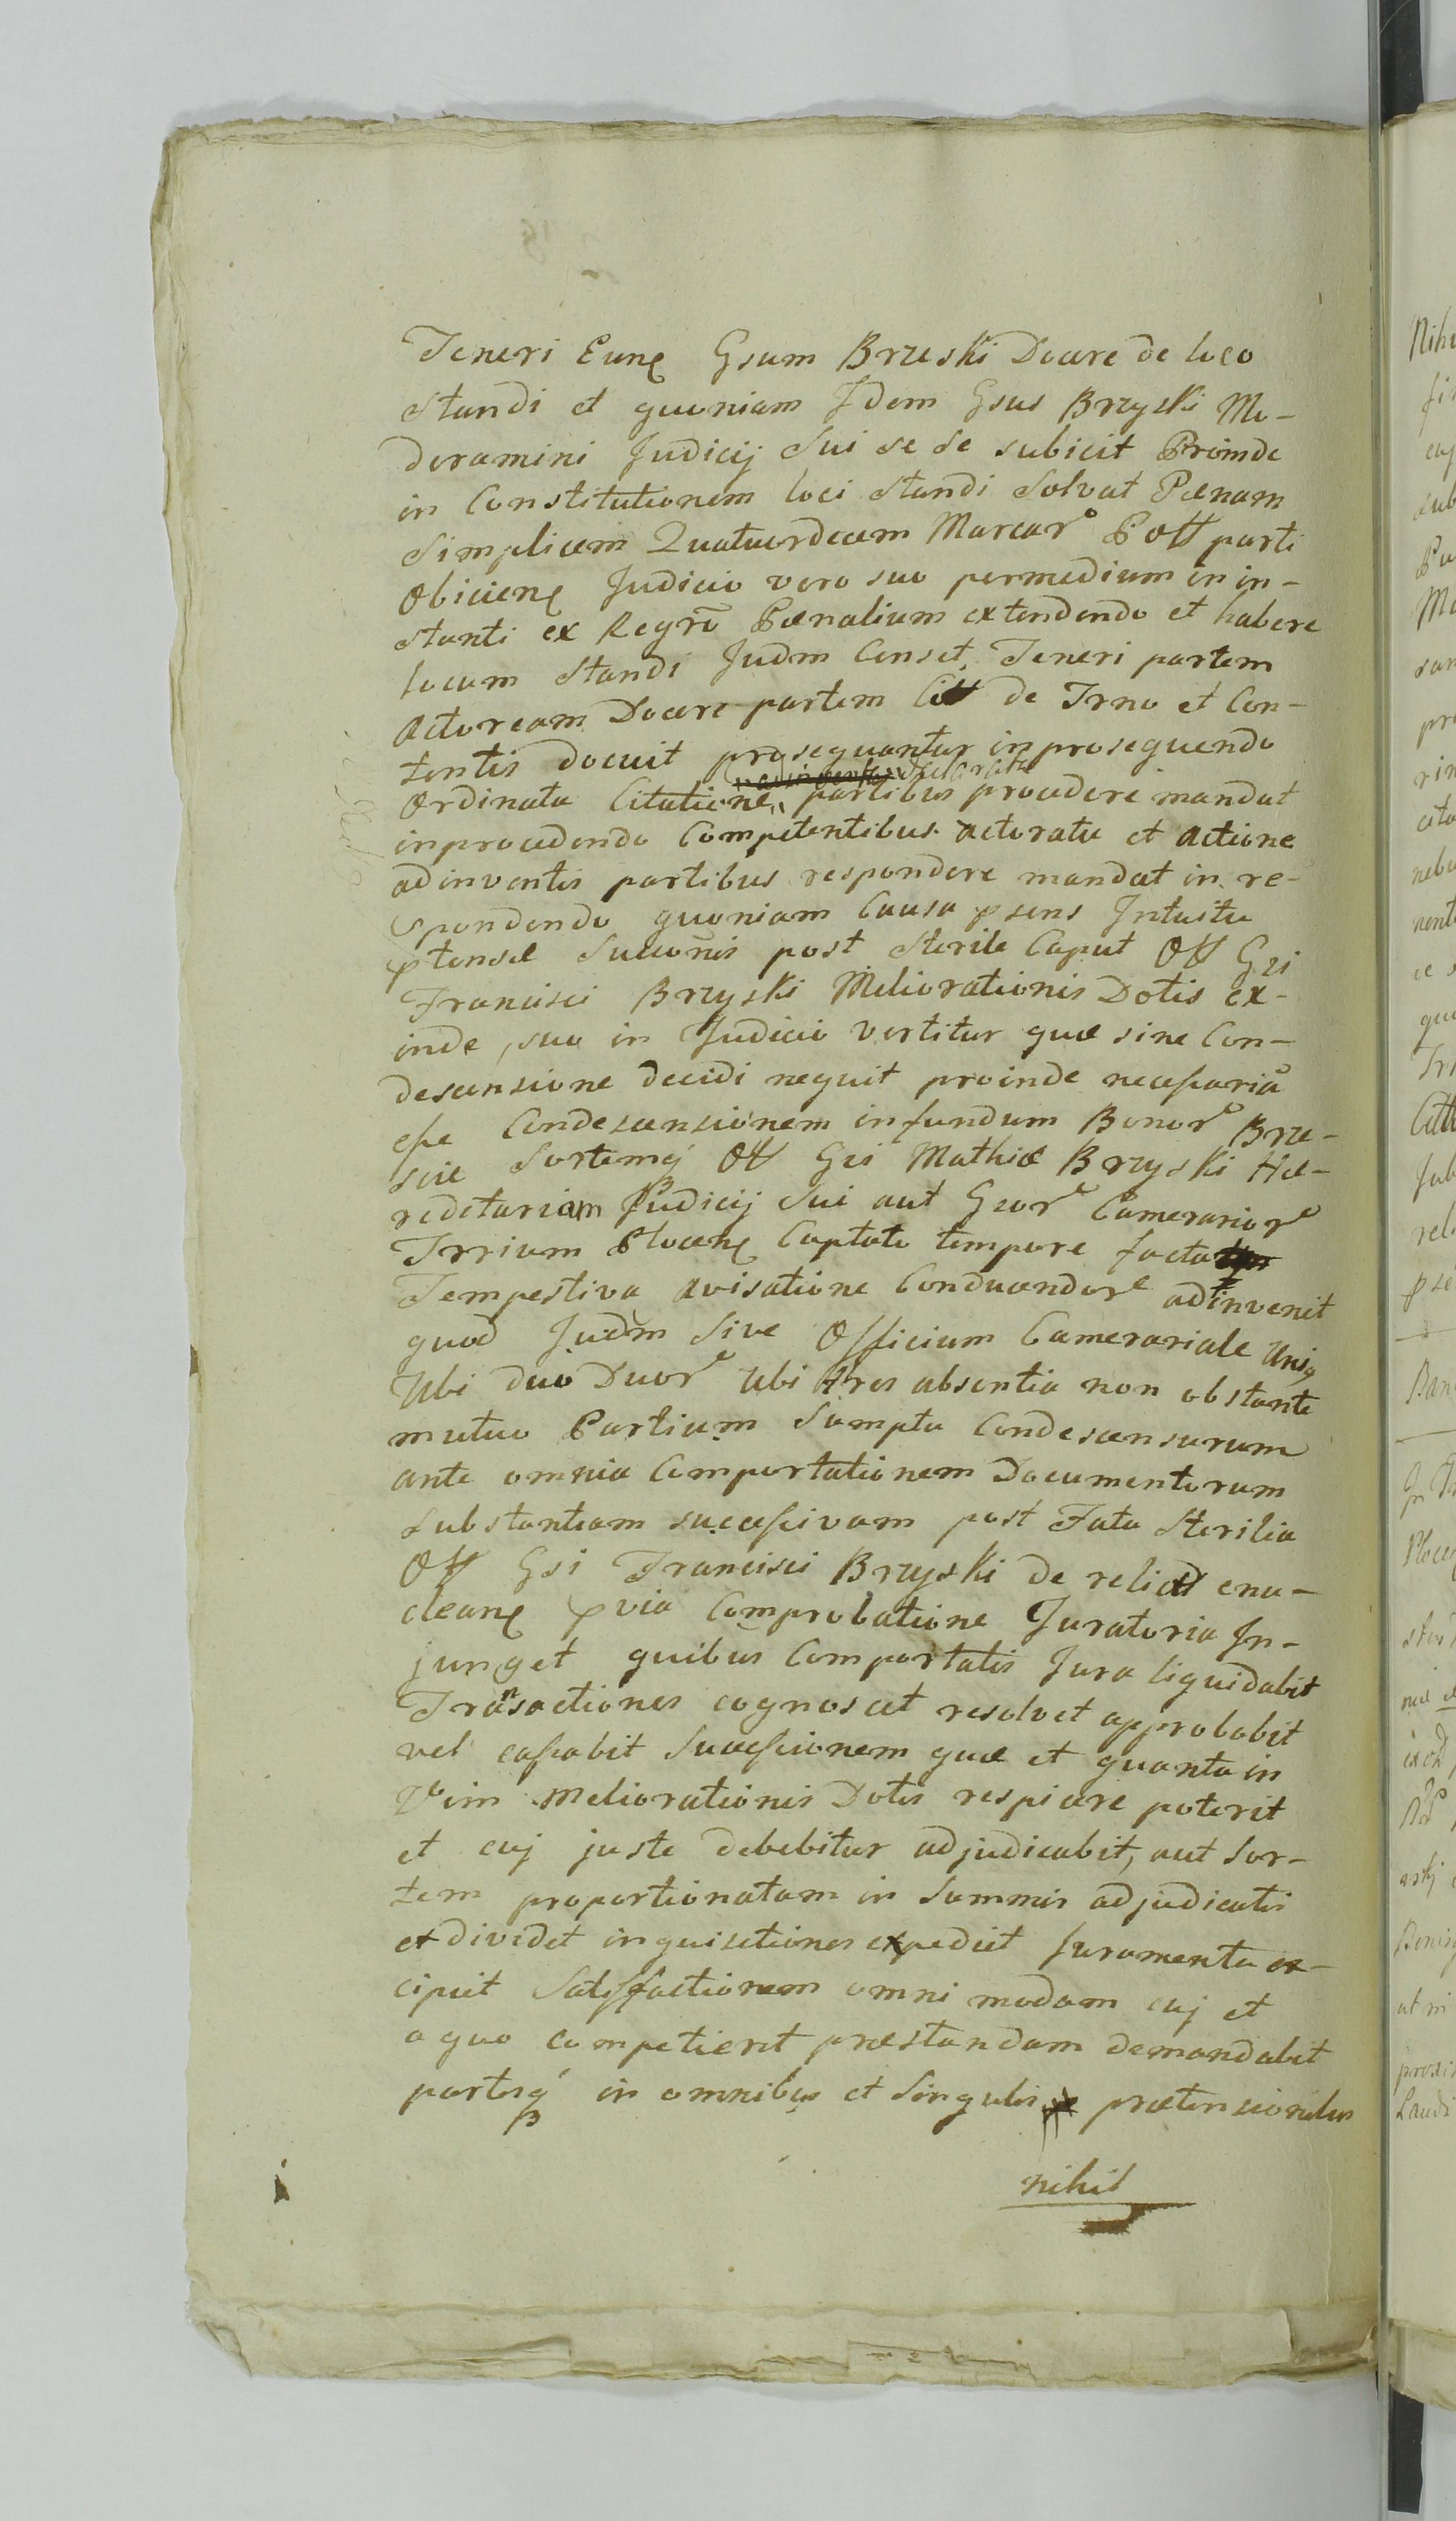 Teneri Eunꝫ Gsum Brzeski Docere de loco
standi et quoniam Idem Gsus Brzyski Mo-
deramini Judicij sui se se subicit Proinde
in Constitutionem loci standi Solvat Pænam
Simplicem Quatuordecem Marcarͦ Poll parti
Obicienꝫ Judicio vero suo permedium in in-
stanti ex Regrõ Pœnalium extendendo et habere
locum standi Judm Censet, Teneri partem
Actoream Docere partem Citt de Trno et Con-
tentis docuit prosequantur in prosequendo
declarata
Ordinata Citatione, partibus procedere mandat
inprocedendo Competentibus Actoratu et Actione
adinventis partibus respondere mandat in re-
spondendo quoniam Causa psens Intuitu
ptensæ Succonis post sterile Caput Oll Gsi
Francisci Brzyski Meliorationis Dotis ex-
inde, suo in Judicio vertitur quæ sine Con-
descensione decidi nequit proinde necessariã
esse Condescensionem infundum Bonorͦ Brze-
scie Sortemq Oll Gsi Mathiæ Brzyski Hæ-
reditariam Judicij sui aut Gsorͤ Camerariorͤ
Trrium Plocenꝫ Captato tempore facta
Tempestiva Avisatione Conducendorͤ adinvenit
quod Judm Sive Officium Camerariale Unig
Ubi duo Duorͤ Ubi tres absentia non obstante
mutuo Partium Sumptu Condescensurum
ante omnia Comportationem Documentorum
Substantiam successivam post Fata Sterilia
Oll Gsi Francisci Brzyski de relict enu-
cleanꝫ pvia Comprobatione Juratoria In-
junget quibus Comportatis Jura liquidabit
Transactiones cognoscet resolvet approbabit
vel cassabit Successionem quæ et quanta in
Vim Meliorationis Dotis respicere poterit
et cuj juste debebitur adjudicabit, aut Sor-
tem proportionatam in Summis adjudicatis
et dividet inquisitiones expediet Juramenta ex-
cipiet Satisfactionem omni modam cuj et
a quo competierit præstandam demandabit
partesq in omnibus et Singulis prætensionibus
nihil